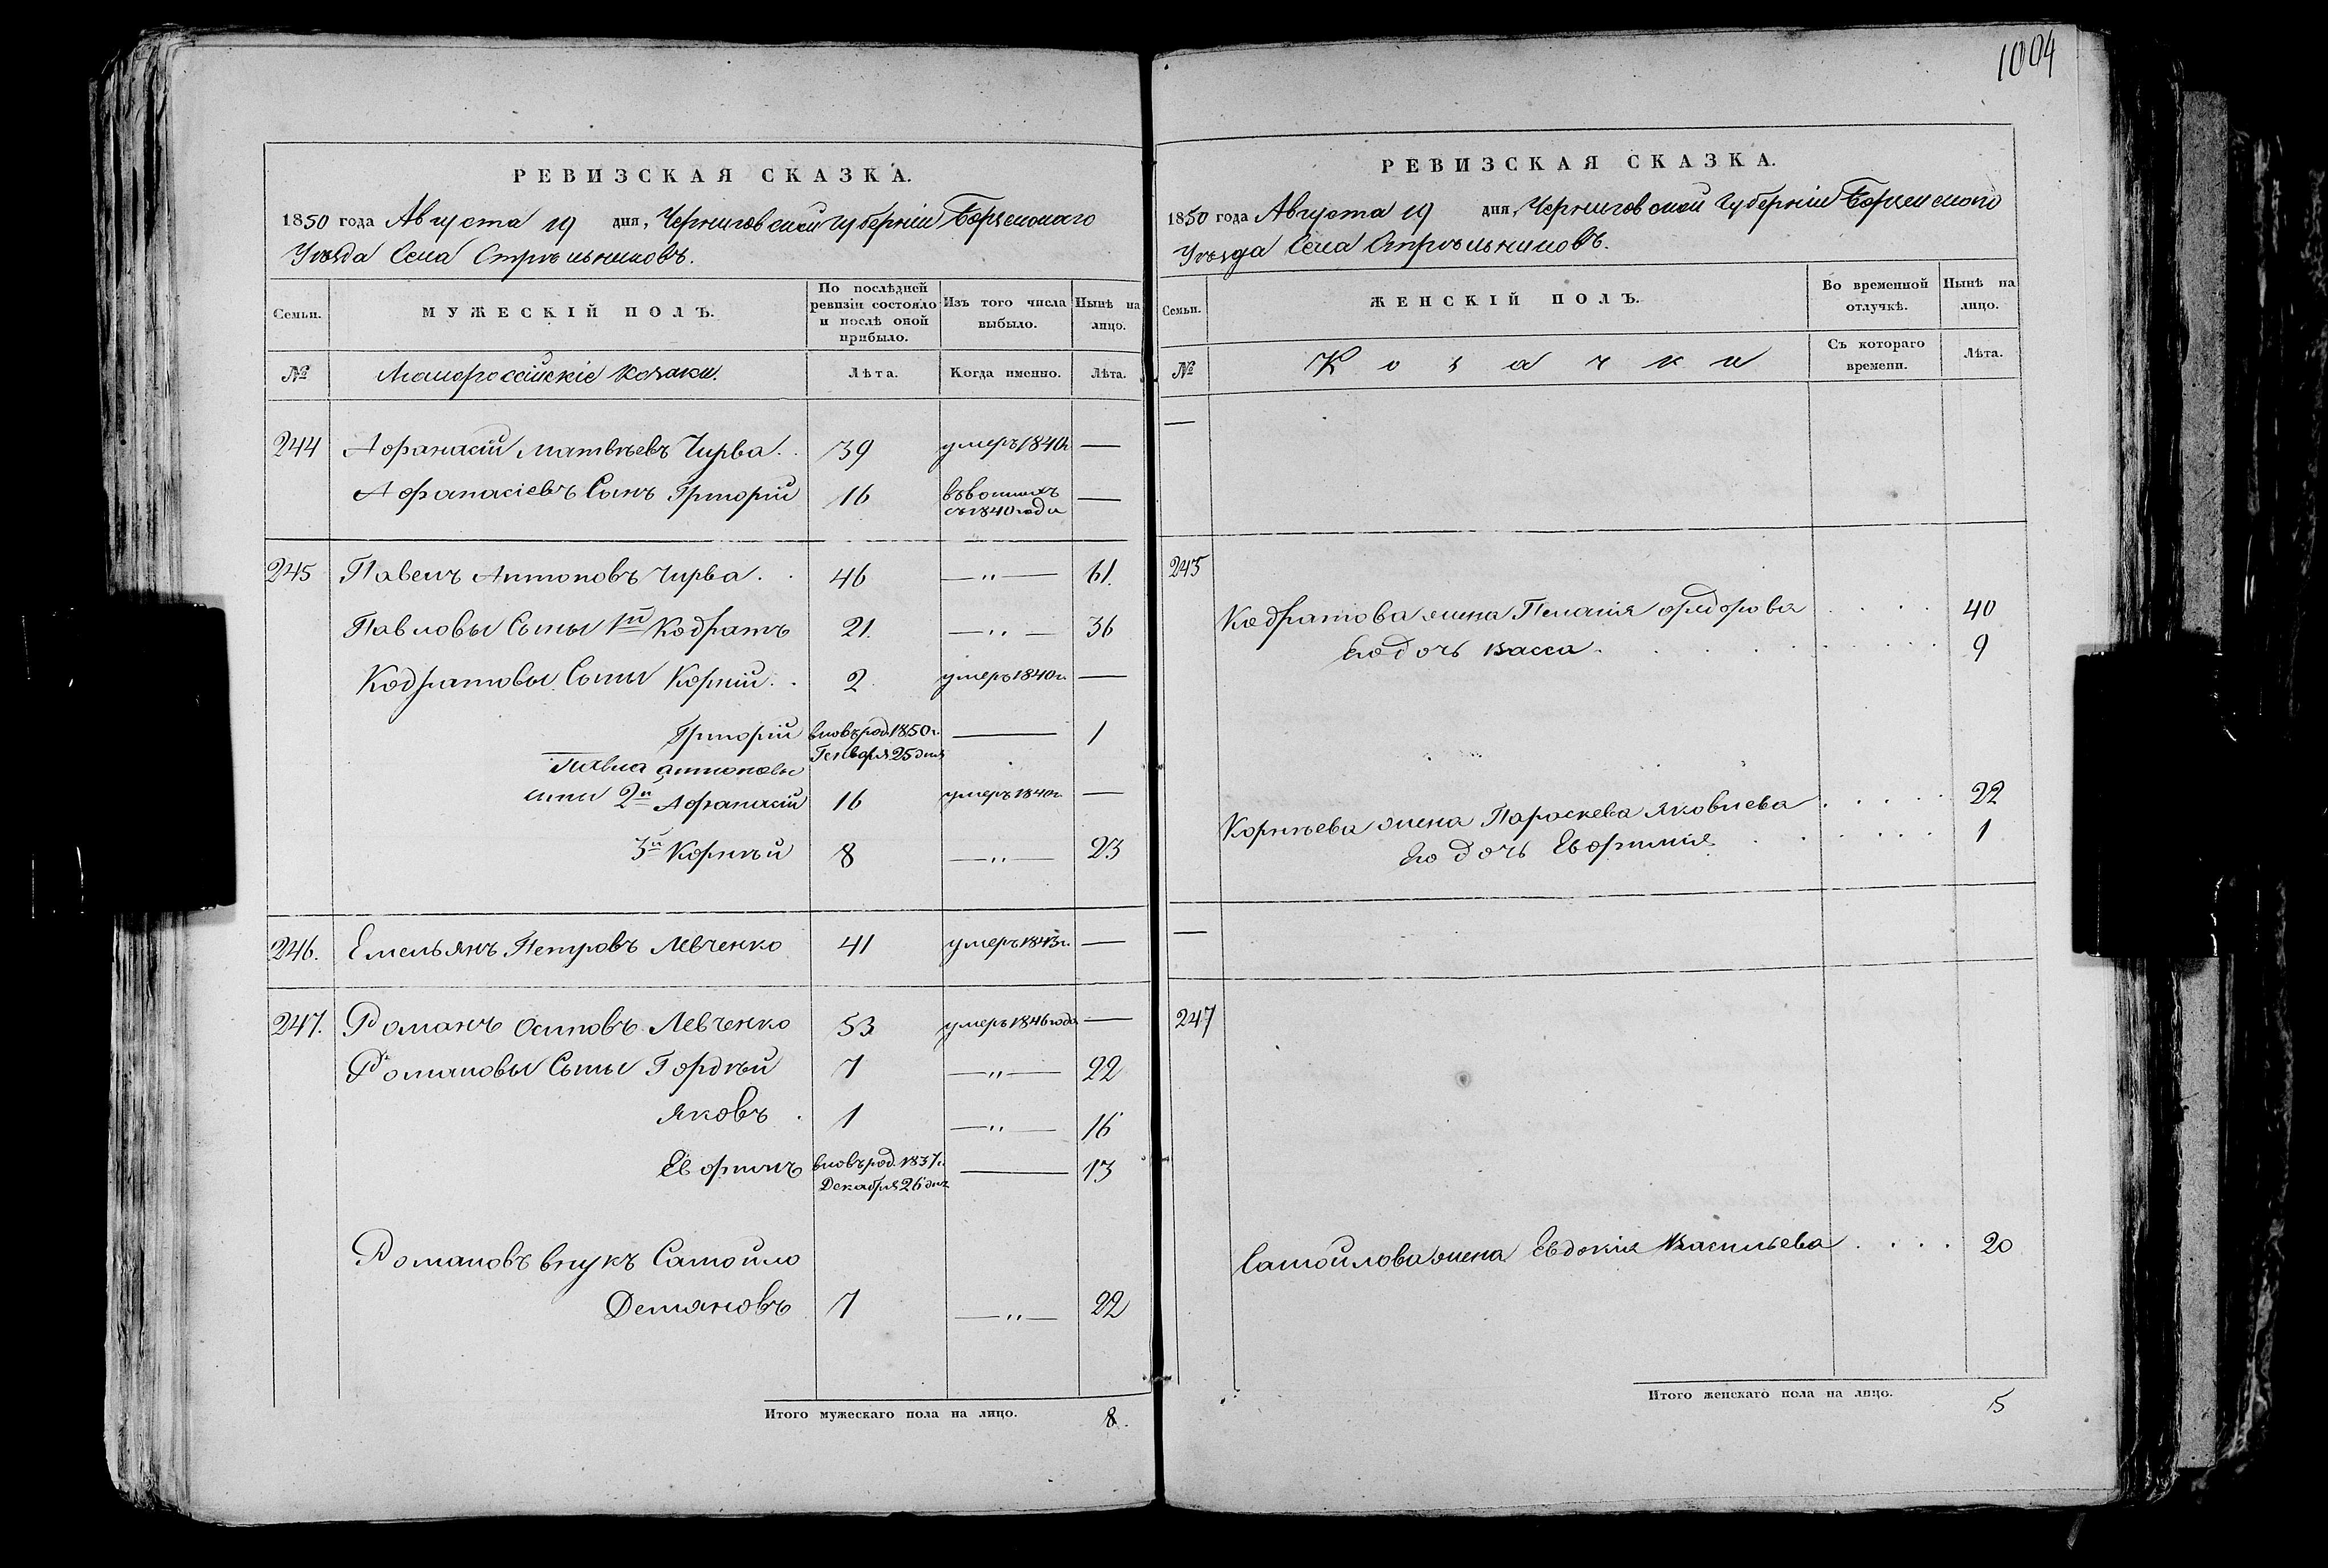 РЕВИЗСКАЯ СКАЗКА.
1850 года Августа 19 дня, Черниговской губерніи Борзенскаго
Уѣзда Села Стрѣльниковъ.
Семьи.
МУЖЕСКІЙ ПОЛЪ.
По послѣдней ревизіи состояло и послѣ оной прибыло.
Изъ того числа выбыло.
Нынѣ на лицо.
№
Малороссійскіе козаки.
Лѣта.
Когда именно.
Лѣта.
244 Афанасій Матвѣевъ Чирва. 39 умеръ 1840г. —
Афанасіевъ Сынъ Григорій 16 —
съ 1840 года
245 Павелъ Антоновъ Чирва . . 46 — " — 61.
Павловы Сыны 1й Кодратъ 21. — " — 36
Кодратовы Сыны Корній . . 2 умеръ 1840г. —
Григорій вновь род. 1850г. — 1
Генваря 25 дня
Павла Антоновы
сыны 2й Афанасій 16 умеръ 1840г. —
3й Корнѣй 8 — " — 23
246. Емельянъ Петровъ Левченко 41 умеръ 1843г. —
247. Романъ Осиповъ Левченко 53 умеръ 1846 года —
Романовы Сыны Гордѣй 7 — " — 22
Яковъ . 1 — " — 16
Евфимъ вновь род. 1837г. — 13
Декабря 26 дня
Романовъ внукъ Самойло
Демяновъ 7 — " — 22
Итого мужескаго пола на лицо. 8.
1004
РЕВИЗСКАЯ СКАЗКА.
1850 года Августа 19 дня, Черниговской губерніи Борзенского
Уѣзда Села Стрѣльниковъ.
Семьи.
ЖЕНСКІЙ ПОЛЪ.
Во временной отлучкѣ.
Нынѣ на лицо.
№
Козачки
Съ котораго времени.
Лѣта.
—
245
Кодратова жена Пелагія Федорова . . . . 40
Его дочь Васса . . . . . . . . 9
Корнѣева жена Параскева Яковлева . . . . . 22
Его дочь Евфимія . . . . . . 1
—
247
Самойлова жена Евдокія Васильева . . . . 20
Итого женскаго пола на лицо. 5